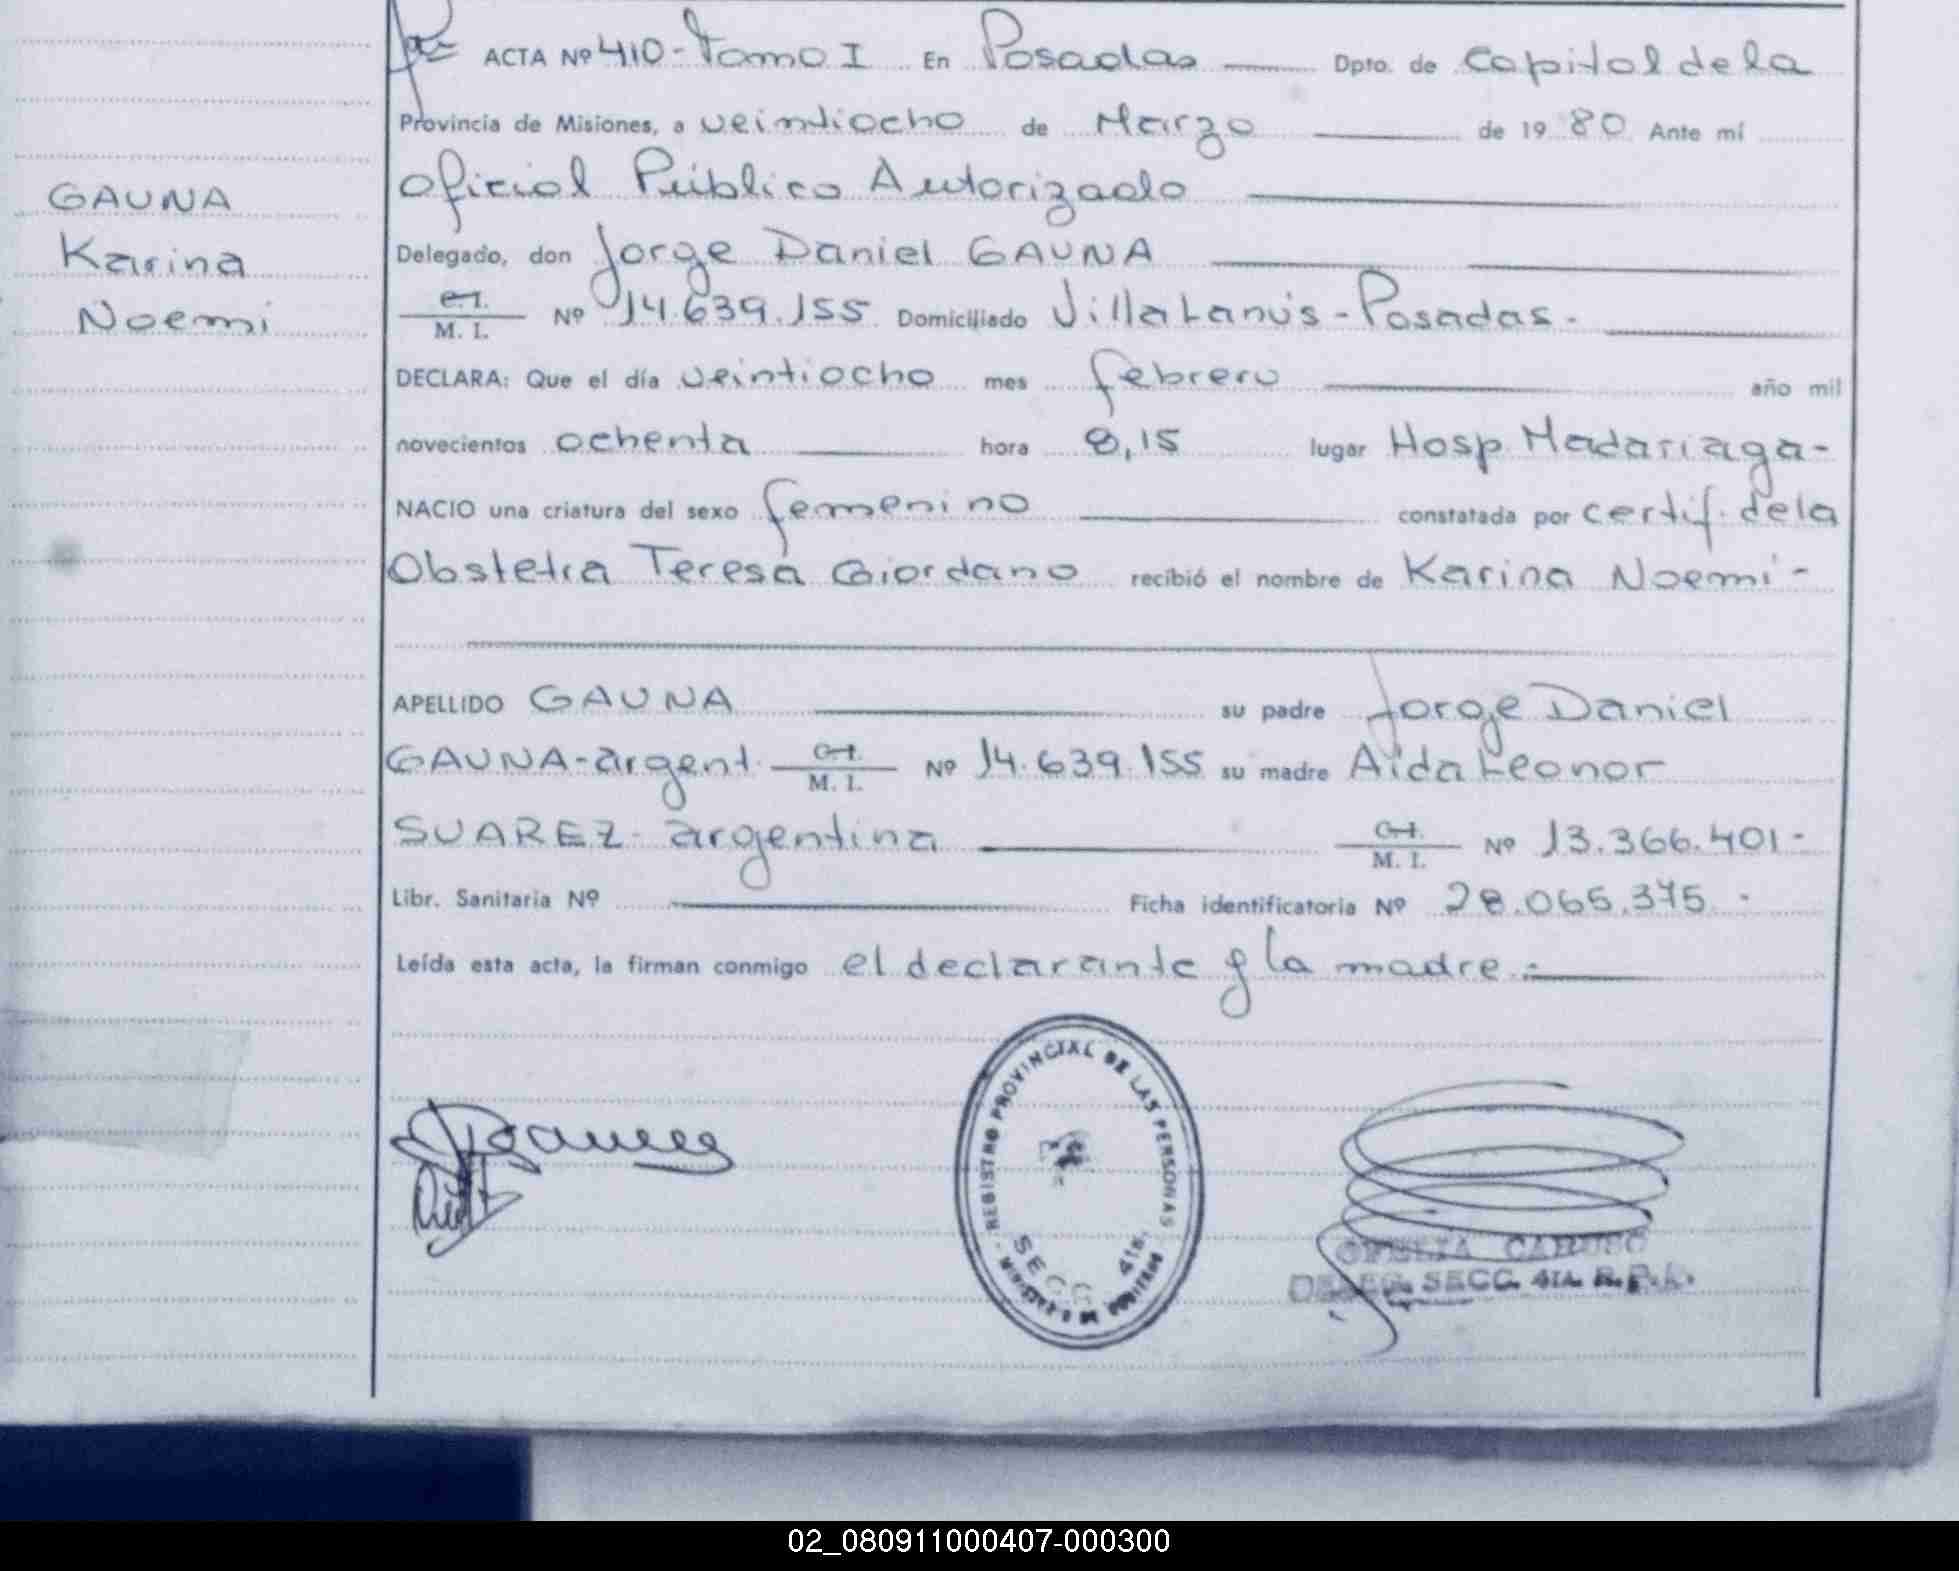 ACTA Nº 410 - Tomo I En Posadas Dpto. de Capital de la
Provincia de Misiones, a veintiocho de Marzo de 1980 Ante mí
Oficial Público Autorizado
GAUNA
Karina
Noemi
Delegado, don Jorge Daniel GAUNA
C.I.
M. I. Nº 14.639.155 Domiciliado Villa Lanús - Posadas -
DECLARA: Que el día veintiocho mes febrero año mil
novecientos ochenta hora 8,15 lugar Hosp. Madariaga -
NACIO una criatura del sexo femenino constatada por certif. de la
Obstetra Teresa Giordano recibió el nombre de Karina Noemi -
APELLIDO GAUNA su padre Jorge Daniel
GAUNA - argent. C.I.
M. I. Nº 14.639.155 su madre Aida Leonor
SUAREZ - argentina C.I.
M. I. Nº 13.366.401 -
Libr. Sanitaria Nº Ficha identificatoria Nº 28.065.375 -
Leída esta acta, la firman conmigo el declarante y la madre.-
REGISTRO PROVINCIAL DE LAS PERSONAS
SECC. 4ta.
OFELIA CARUSO
DELEG. SECC. 4TA. R.P.P.
02_080911000407-000300